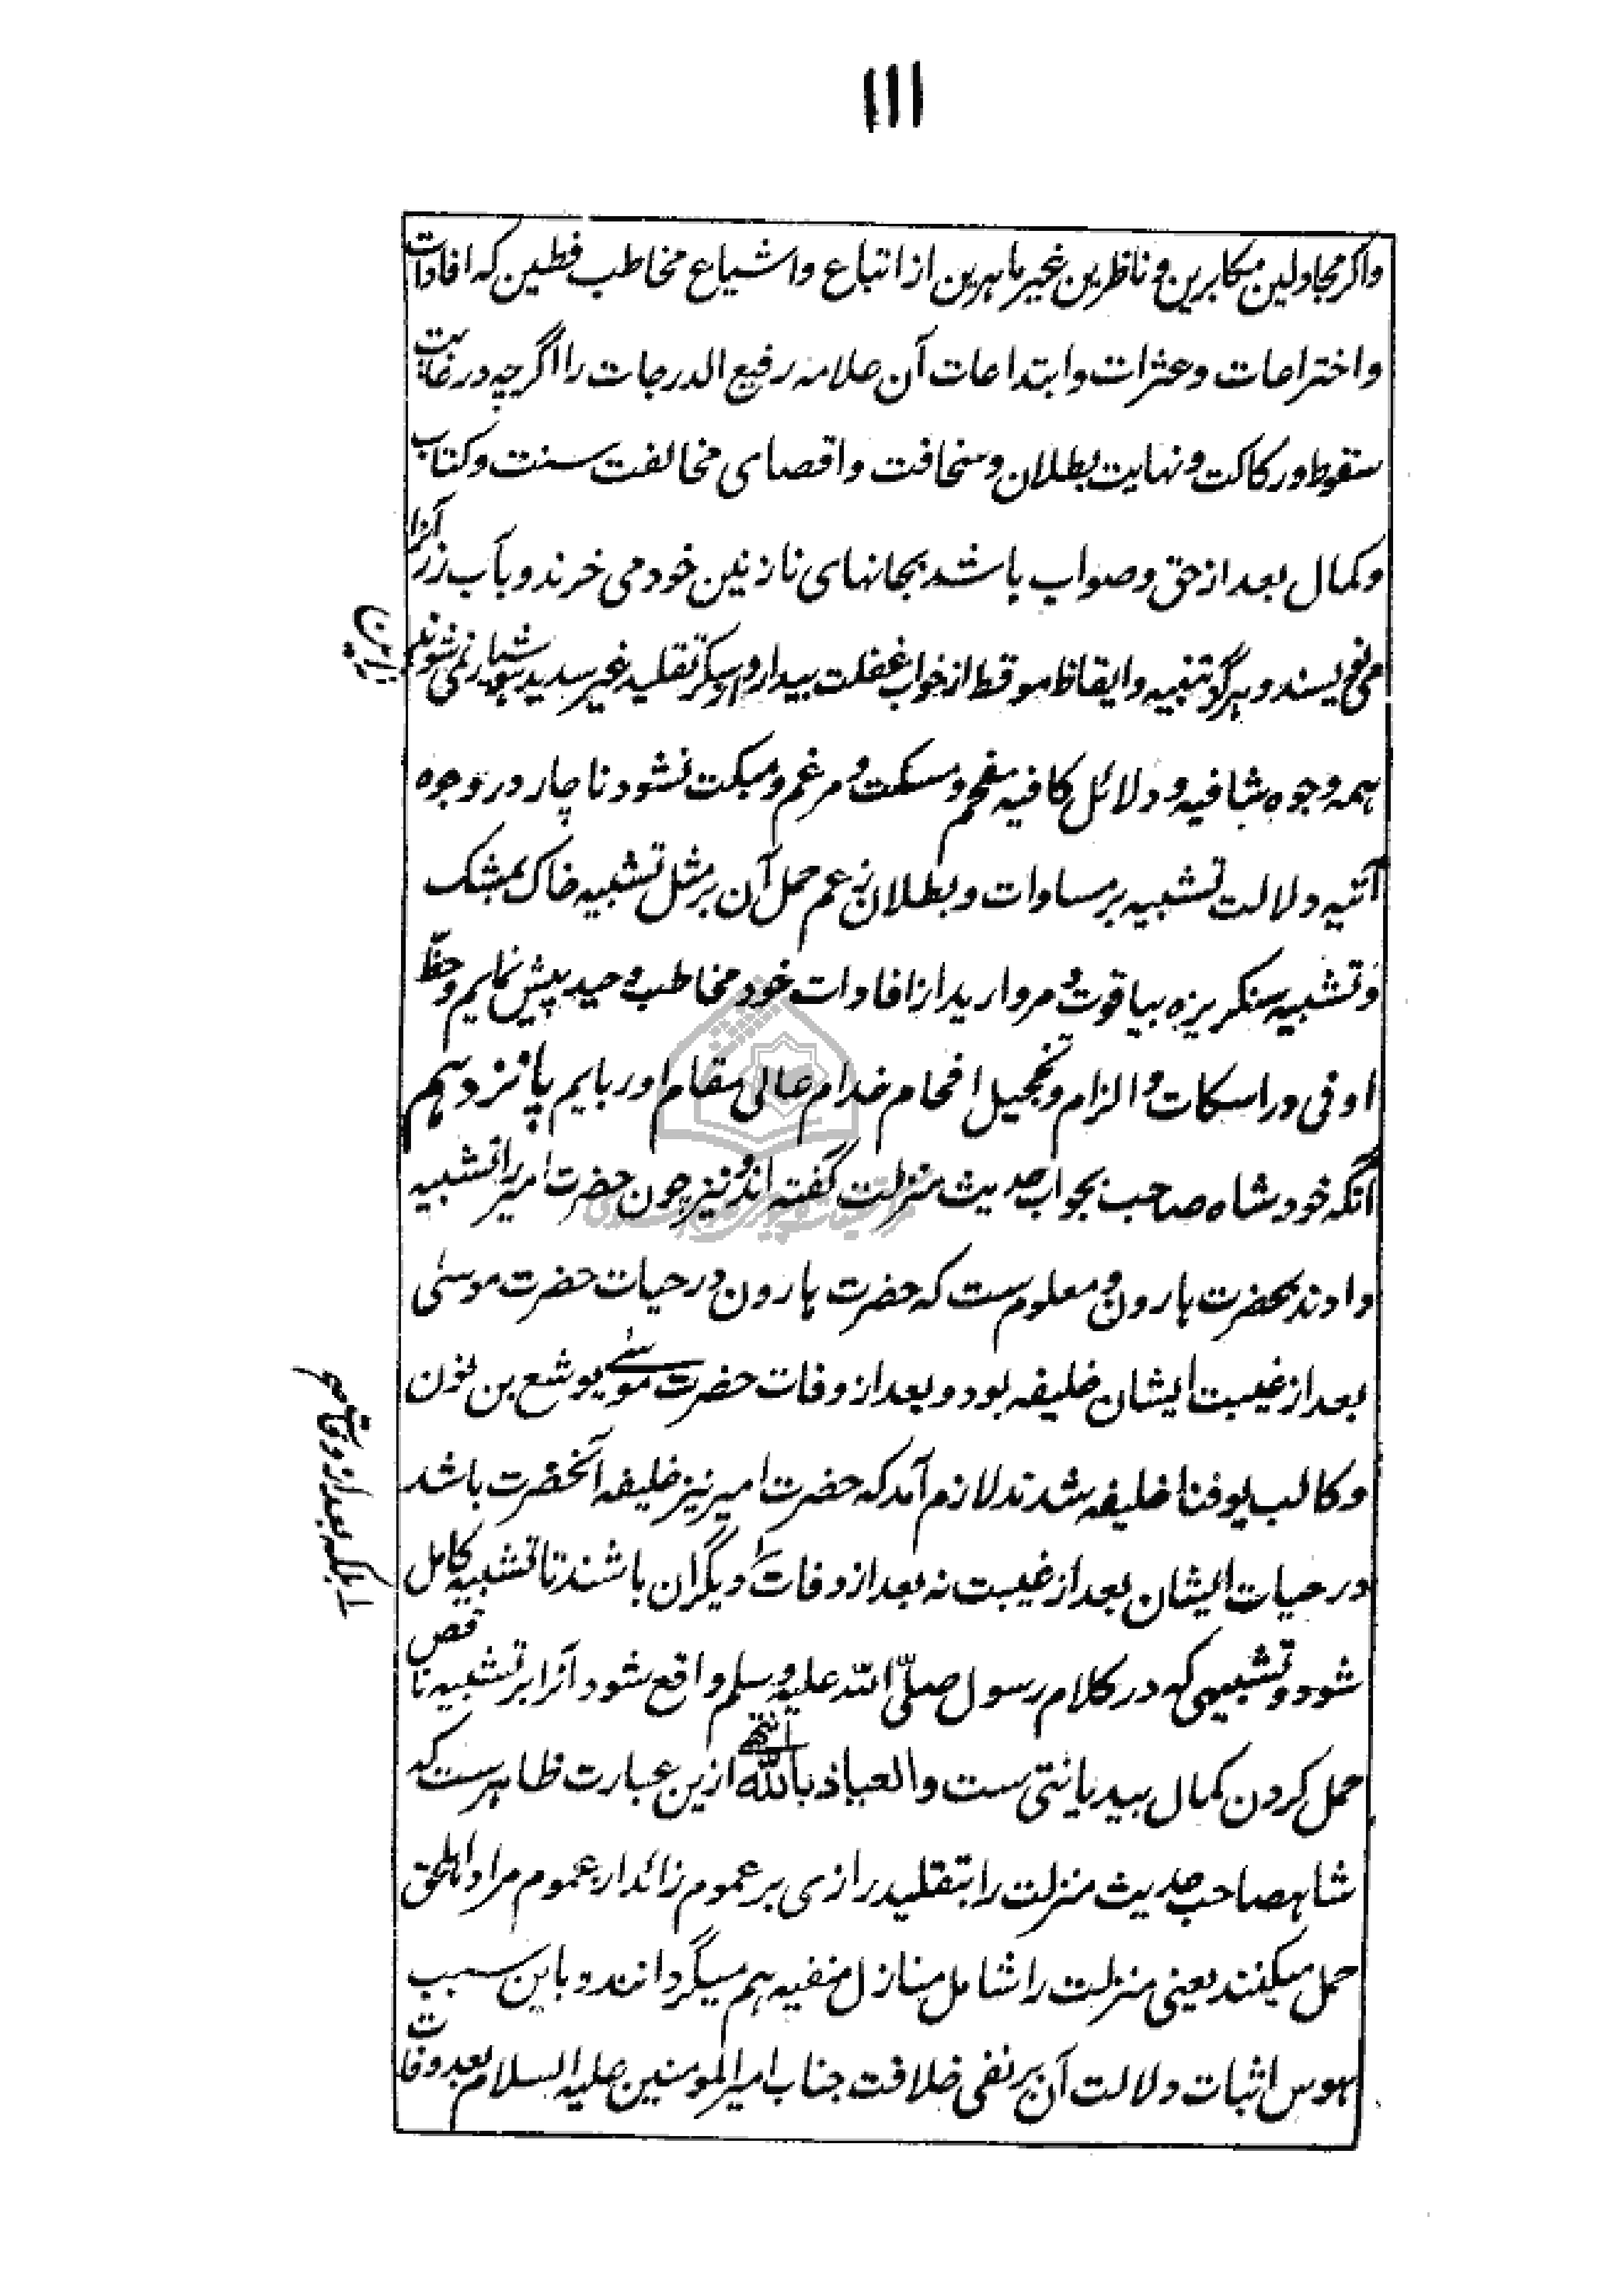 ۱۱۱
واگر مجادلین مکابرین و ناظرین غیر ماهرین از اتباع و اشیاع مخاطب فطین که افادات
و اختراعات و عثرات و ابتداعات آن علامه رفیع الدرجات را اگرچه در غایت
سقوط و رکاکت و نهایت بطلان و سخافت و اقصای مخالفت سنت و کتاب
و کمال بعد از حق و صواب باشد بجانهای نازنین خود می خرند و بآب زر آنرا
می نویسند و هرگز تنبیه و ایقاظ موقظ از خواب غفلت بیدار و از سکر تقلید غیر سدید هشیار نمی شوند
باین
همه وجوه شافیه و دلائل کافیه مفحم و مسکت و مرغم و مبکت نشود ناچار در وجوه
آتیه دلالت تشبیه بر مساوات و بطلان زعم حمل آن بر مثل تشبیه خاک بمشک
و تشبیه سنگریزه بیاقوت و مروارید از افادات خود مخاطب وحید پیش نمایم و حظّ
اوفی در اسکات و الزام و تخجیل و افحام خدام عالی مقام او ربایم پانزدهم
آنکه خود شاه صاحب بجواب حدیث منزلت گفته اند و نیز چون حضرت امیر را تشبیه
دادند بحضرت هارون و معلوم ست که حضرت هارون در حیات حضرت موسی
بعد از غیبت ایشان خلیفه بود و بعد از وفات حضرت موسی یوشع بن نون
و کالب بن یوفنا خلیفه شدند لازم آمد که حضرت امیر نیز خلیفه آنحضرت باشد
در حیات ایشان بعد از غیبت نه بعد از وفات دیگران باشند تا تشبیه کامل
بلکه بعد از وفات
شود و تشبیهی که در کلام رسول صلّی الله علیه وسلم واقع شود آنرا بر تشبیه ناقص
حمل کردن کمال بیدیانتی ست والعیاذ بالله انتهی ازین عبارت ظاهرست که
شاهصاحب حدیث منزلت را بتقلید رازی بر عموم زائد از عموم مراد اهل حق
حمل میکنند یعنی منزلت را شامل منازل منفیه هم میگردانند و باین سبب
هوس اثبات دلالت آن بر نفی خلافت جناب امیرالمومنین علیه السلام بعد وفات